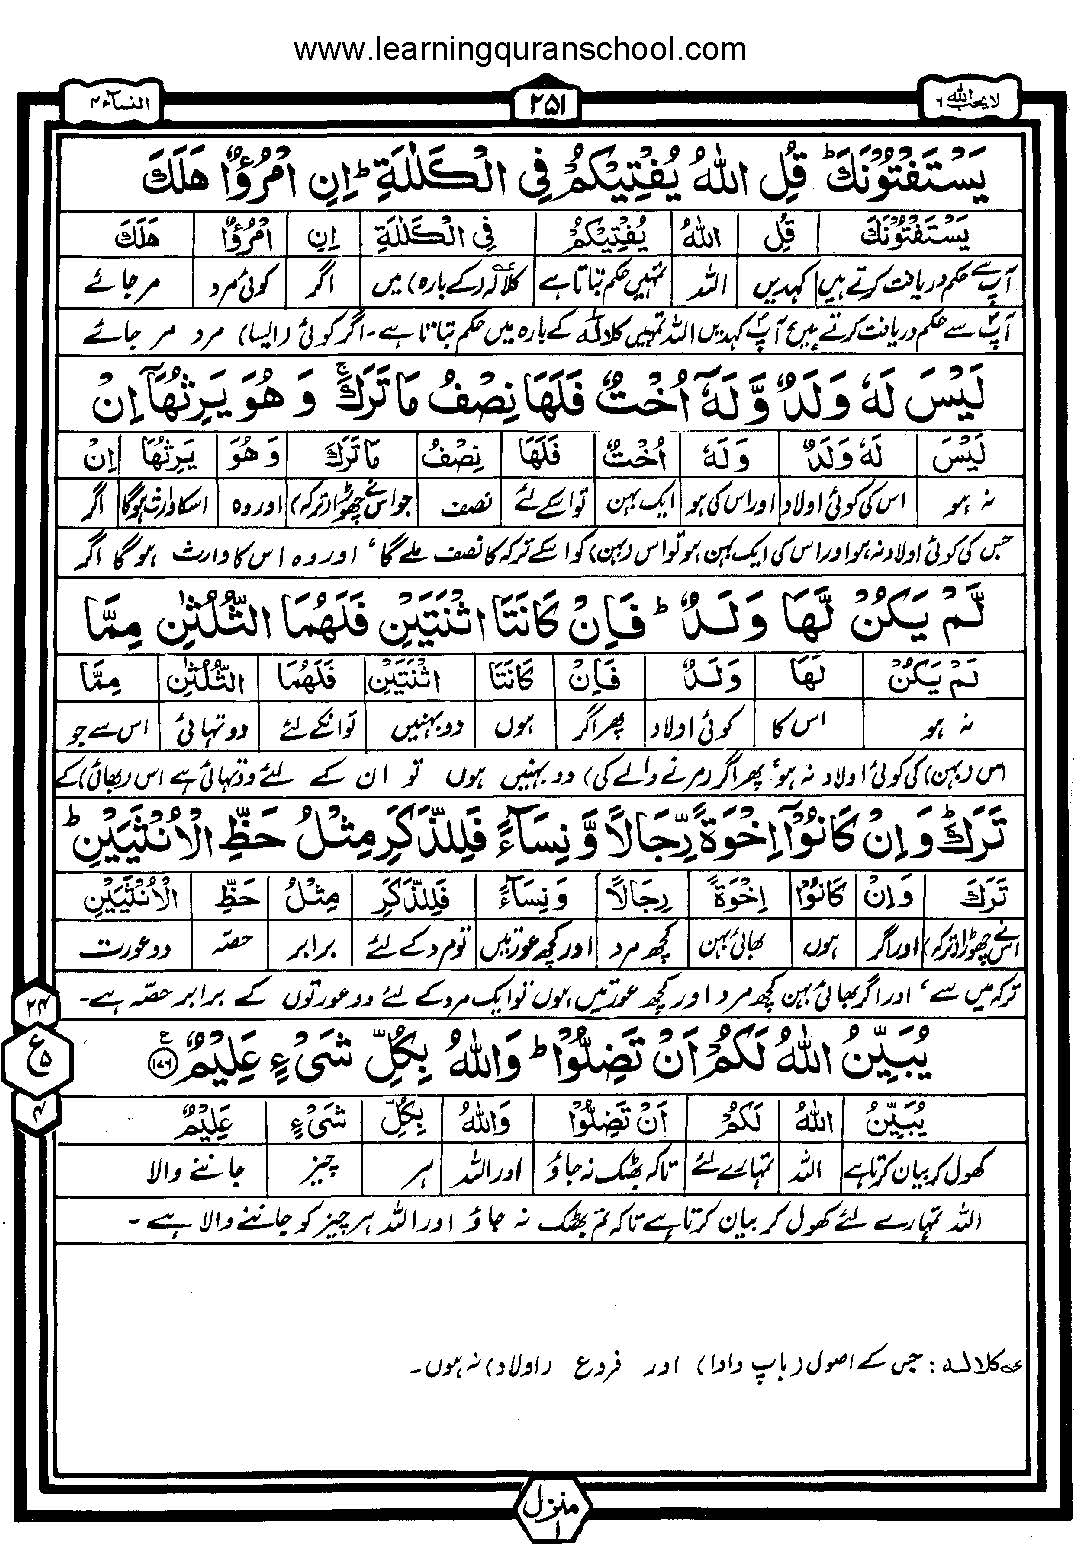 www.learningquranschool.com
لا یحب اللہ ۶
۲۵۱
النساء ۴
يَسْتَفْتُوْنَكَ ؕ قُلِ اللّٰهُ يُفْتِيْكُمْ فِي الْكَلٰلَةِ ؕ اِنِ امْرُؤٌا هَلَكَ
يَسْتَفْتُوْنَكَ قُلِ اللّٰهُ يُفْتِيْكُمْ فِي الْكَلٰلَةِ اِنِ امْرُؤٌا هَلَكَ
آپ سے حکم دریافت کرتے ہیں کہدیں اللہ تمہیں حکم بتاتا ہے کلالہ (کے بارہ) میں اگر کوئی مرد مر جائے
آپ سے حکم دریافت کرتے ہیں، آپ کہدیں اللہ تمہیں کلالہ کے بارہ میں حکم بتاتا ہے۔ اگر کوئی (ایسا) مرد مر جائے
لَيْسَ لَهٗ وَلَدٌ وَّلَهٗۤ اُخْتٌ فَلَهَا نِصْفُ مَا تَرَكَ ۚ وَهُوَ يَرِثُهَاۤ اِنْ
لَيْسَ لَهٗ وَلَدٌ وَلَهٗ اُخْتٌ فَلَهَا نِصْفُ مَا تَرَكَ وَهُوَ يَرِثُهَا اِنْ
نہ ہو اس کی کوئی اولاد اور اس کی ہو ایک بہن تو اسکے لئے نصف جو اس نے چھوڑا (ترکہ) اور وہ اسکا وارث ہوگا اگر
جس کی کوئی اولاد نہ ہو اور اس کی ایک بہن ہو تو اس (بہن) کو اسکے ترکہ کا نصف ملے گا، اور وہ اس کا وارث ہو گا اگر
لَّمْ يَكُنْ لَّهَا وَلَدٌ ؕ فَاِنْ كَانَتَا اثْنَتَيْنِ فَلَهُمَا الثُّلُثٰنِ مِمَّا
لَمْ يَكُنْ لَهَا وَلَدٌ فَاِنْ كَانَتَا اثْنَتَيْنِ فَلَهُمَا الثُّلُثٰنِ مِمَّا
نہ ہو اس کا کوئی اولاد پھر اگر ہوں دو بہنیں تو انکے لئے دو تہائی اس سے جو
اس (بہن) کی کوئی اولاد نہ ہو، پھر اگر (مرنے والے کی) دو بہنیں ہوں تو ان کے لئے دو تہائی ہے اس (بھائی) کے
تَرَكَ ؕ وَاِنْ كَانُوْۤا اِخْوَةً رِّجَالًا وَّنِسَآءً فَلِلذَّكَرِ مِثْلُ حَظِّ الْاُنْثَيَيْنِ ؕ
تَرَكَ وَاِنْ كَانُوْا اِخْوَةً رِجَالًا وَنِسَآءً فَلِلذَّكَرِ مِثْلُ حَظِّ الْاُنْثَيَيْنِ
اس نے چھوڑا (ترکہ) اور اگر ہوں بھائی بہن کچھ مرد اور کچھ عورتیں تو مرد کے لئے برابر حصّہ دو عورت
ترکہ میں سے، اور اگر بھائی بہن کچھ مرد اور کچھ عورتیں ہوں تو ایک مرد کے لئے دو عورتوں کے برابر حصّہ ہے۔
۲۴
ع
۵
۴
يُبَيِّنُ اللّٰهُ لَكُمْ اَنْ تَضِلُّوْا ؕ وَاللّٰهُ بِكُلِّ شَيْءٍ عَلِيْمٌ ۧ ﴿۱۷۶﴾
يُبَيِّنُ اللّٰهُ لَكُمْ اَنْ تَضِلُّوْا وَاللّٰهُ بِكُلِّ شَيْءٍ عَلِيْمٌ
کھول کر بیان کرتا ہے اللہ تمہارے لئے تاکہ بھٹک نہ جاؤ اور اللہ ہر چیز جاننے والا
اللہ تمہارے لئے کھول کر بیان کرتا ہے تاکہ تم بھٹک نہ جاؤ اور اللہ ہر چیز کو جاننے والا ہے۔
کلالہ: جس کے اصول (باپ دادا) اور فروع (اولاد) نہ ہوں۔
منزل ۱